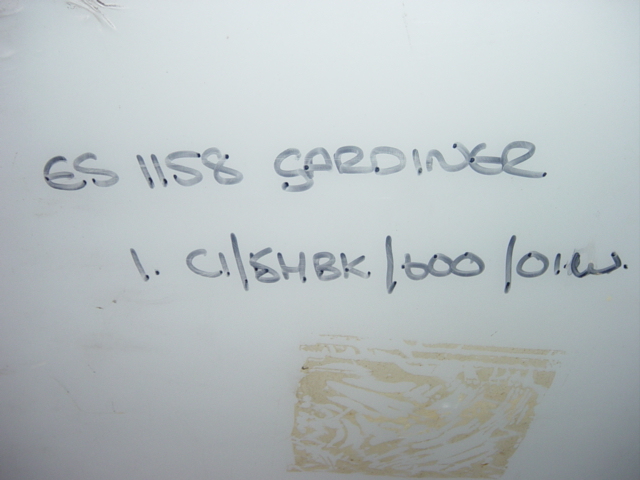 ES 1158 GARDINER
1. C1/SHBK/600/01.W.